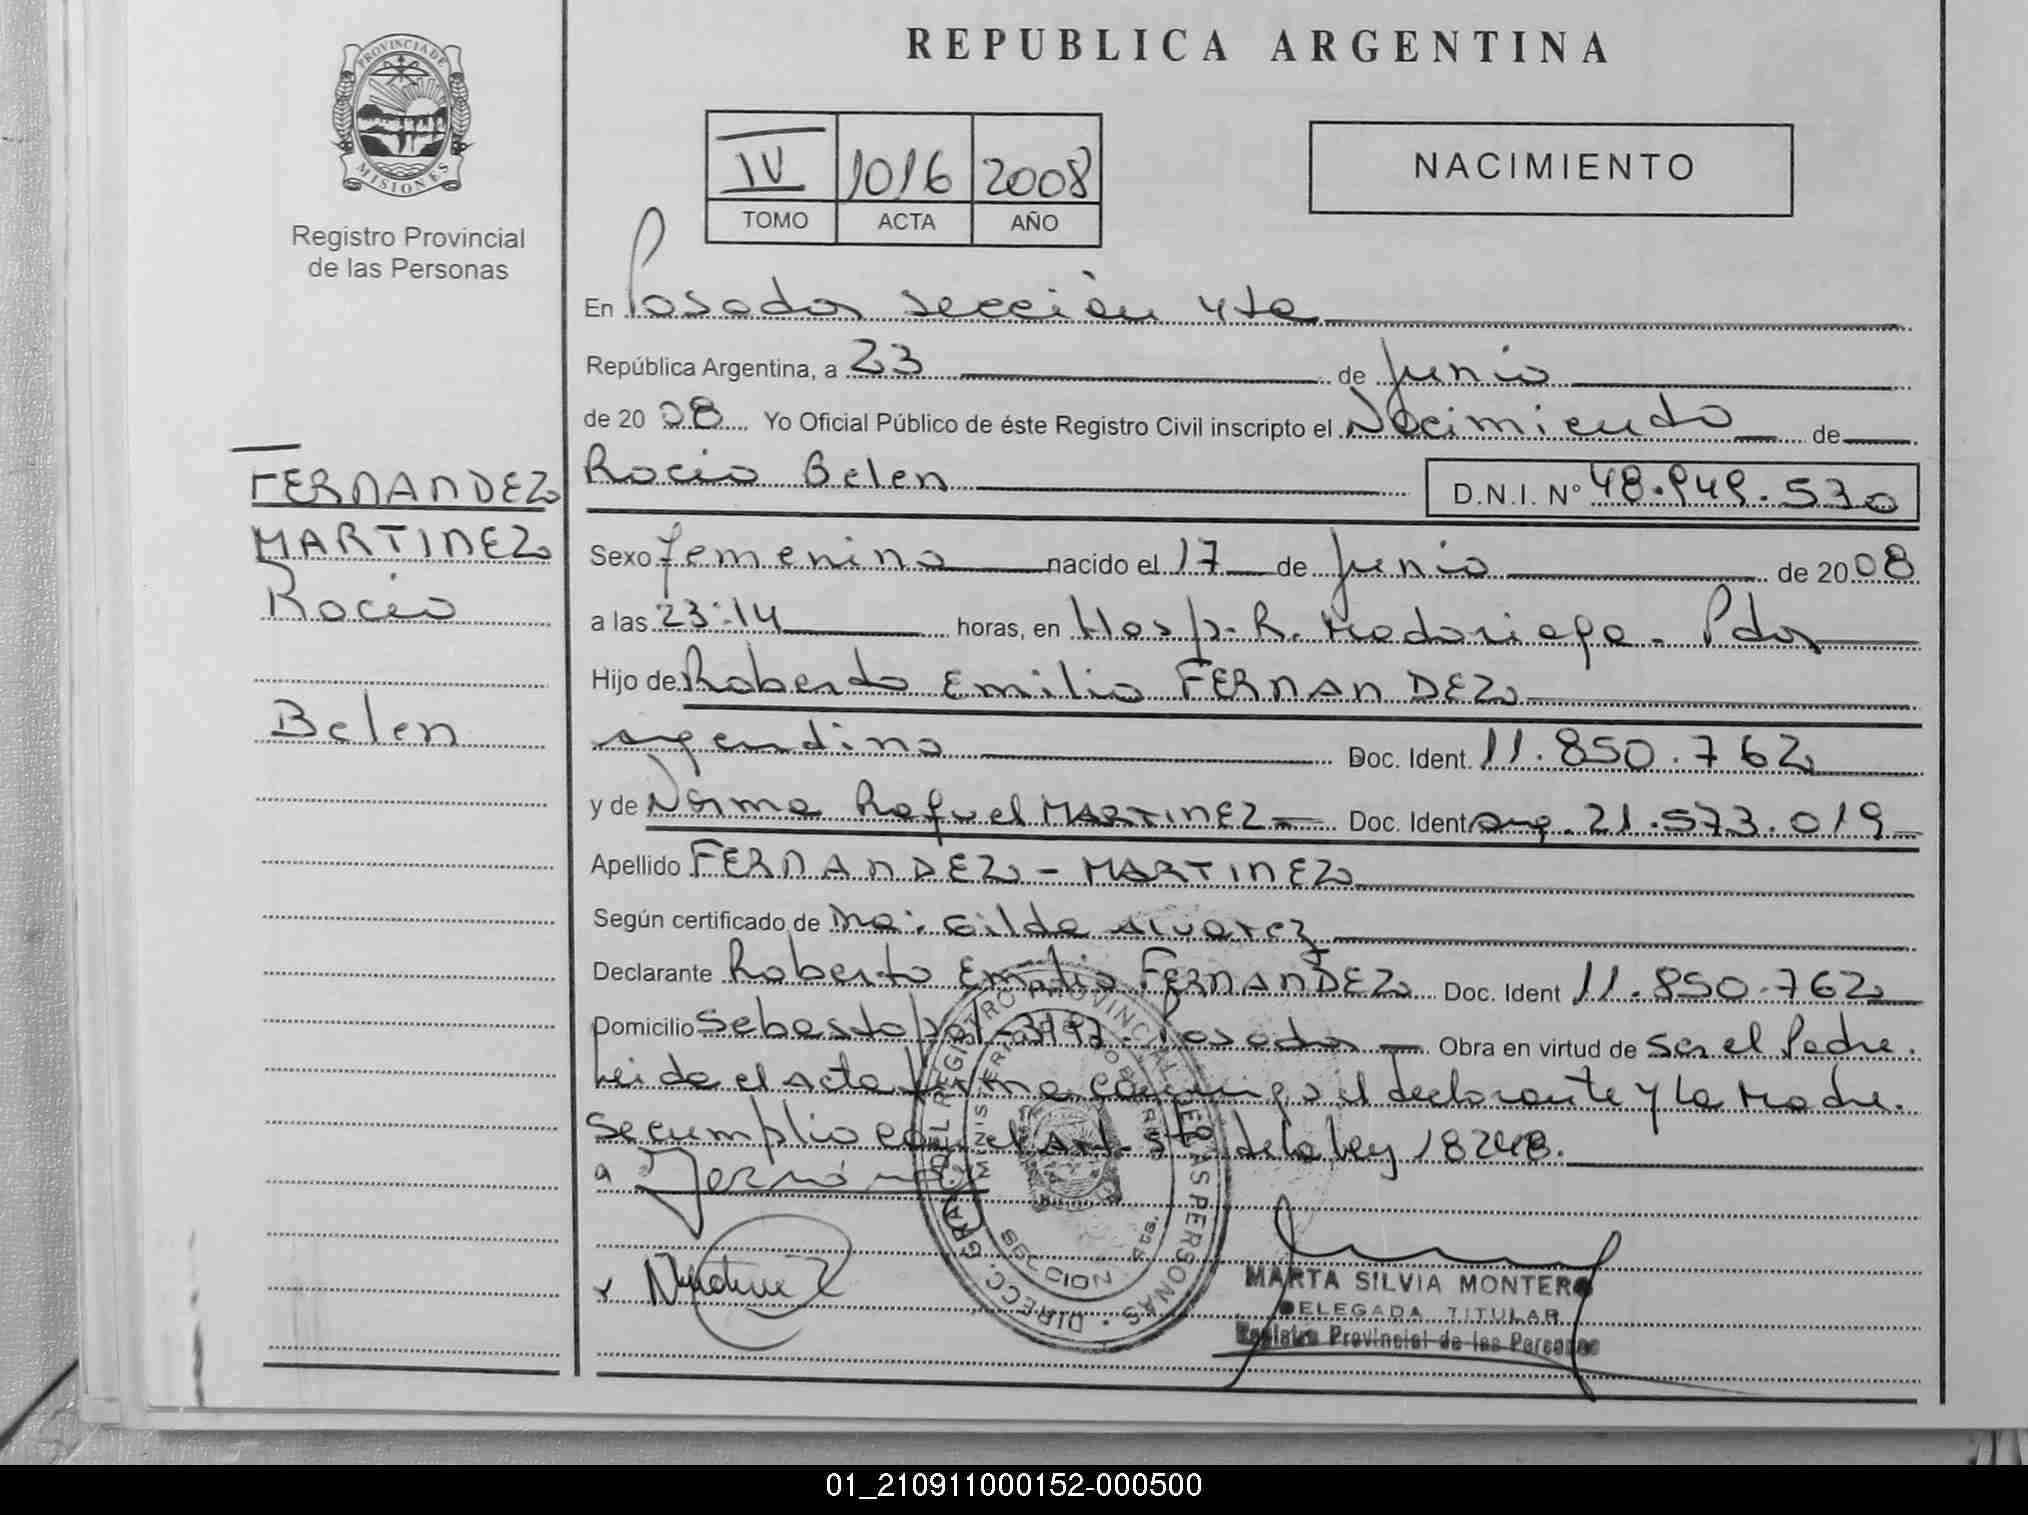 PROVINCIA DE
MISIONES
Registro Provincial
de las Personas
REPUBLICA ARGENTINA
IV 1016 2008
TOMO ACTA AÑO
NACIMIENTO
FERNANDEZ
MARTINEZ
Rocio
Belen
En Posadas sección 4ta
República Argentina, a 23 de junio
de 2008 Yo Oficial Público de éste Registro Civil inscripto el Nacimiento de
Rocio Belen D.N.I. Nº 48.949.530
Sexo femenino nacido el 17 de junio de 2008
a las 23:14 horas, en Hosp. R. Madariaga. Pdas
Hijo de Roberto Emilio FERNANDEZ
argentino Doc. Ident. 11.850.762
y de Norma Raquel MARTINEZ Doc. Ident arg. 21.573.019
Apellido FERNANDEZ - MARTINEZ
Según certificado de Ma: Gilda Alvarez
Declarante Roberto Emilio FERNANDEZ Doc. Ident 11.850.762
Domicilio Sebastopol Posadas Obra en virtud de ser el Padre.
Leida el acta firma conmigo el declarante y la Madre.
Se cumplio con el Art. 5to de la ley 18248.
DIRECC. GRAL DEL REGISTRO PROVINCIAL DE LAS PERSONAS
MINISTERIO DE GOBIERNO
MARTA SILVIA MONTERO
DELEGADA TITULAR
Registro Provincial de las Personas
01_210911000152-000500